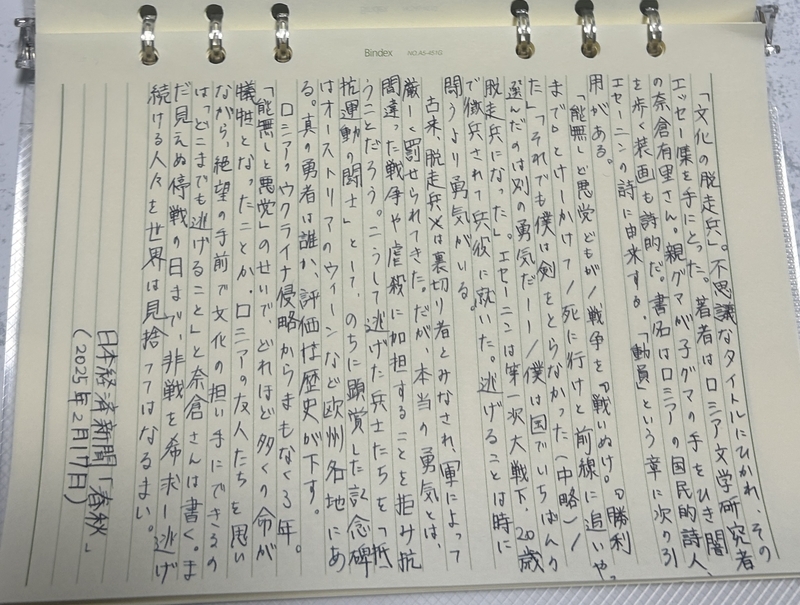 Bindex NO.A5-451G
「文化の脱走兵」。不思議なタイトルにひかれ、その
エッセー集を手にとった。著者はロシア文学研究者
の奈倉有里さん。親グマが子グマの手をひき闇
を歩く装画も詩的だ。書名はロシアの国民的詩人、
エセーニンの詩に由来する。「動員」という章に次の引
用がある。
「能無しと悪党どもが/戦争を『戦いぬけ。『勝利
まで』とけしかけて/死に行けと前線に追いやっ
た」「それでも僕は剣をとらなかった(中略)/
選んだのは別の勇気だ――/僕は国でいちばんの
脱走兵になった」。エセーニンは第一次大戦下、20歳
で徴兵されて兵役に就いた。逃げることは時に
闘うより勇気がいる。
古来、脱走兵は裏切り者とみなされ、軍によって
厳しく罰せられてきた。だが、本当の勇気とは、
間違った戦争や虐殺に加担することを拒み抗
うことだろう。こうして逃げた兵士たちを「抵
抗運動の闘士」として、のちに顕賞した記念碑
はオーストリアのウィーンなど欧州各地にあ
る。真の勇者は誰か、評価は歴史が下す。
ロシアのウクライナ侵略からまもなく3年。
「能無しと悪党」のせいでどれほど多くの命が
犠牲となったことか。ロシアの友人たちを思い
ながら、絶望の手前で文化の担い手にできるの
は「どこまでも逃げること」と奈倉さんは書く。ま
だ見えぬ停戦の日まで、非戦を希求し逃げ
続ける人々を世界は見捨ててはなるまい。
日本経済新聞「春秋」
(2025年2月17日)